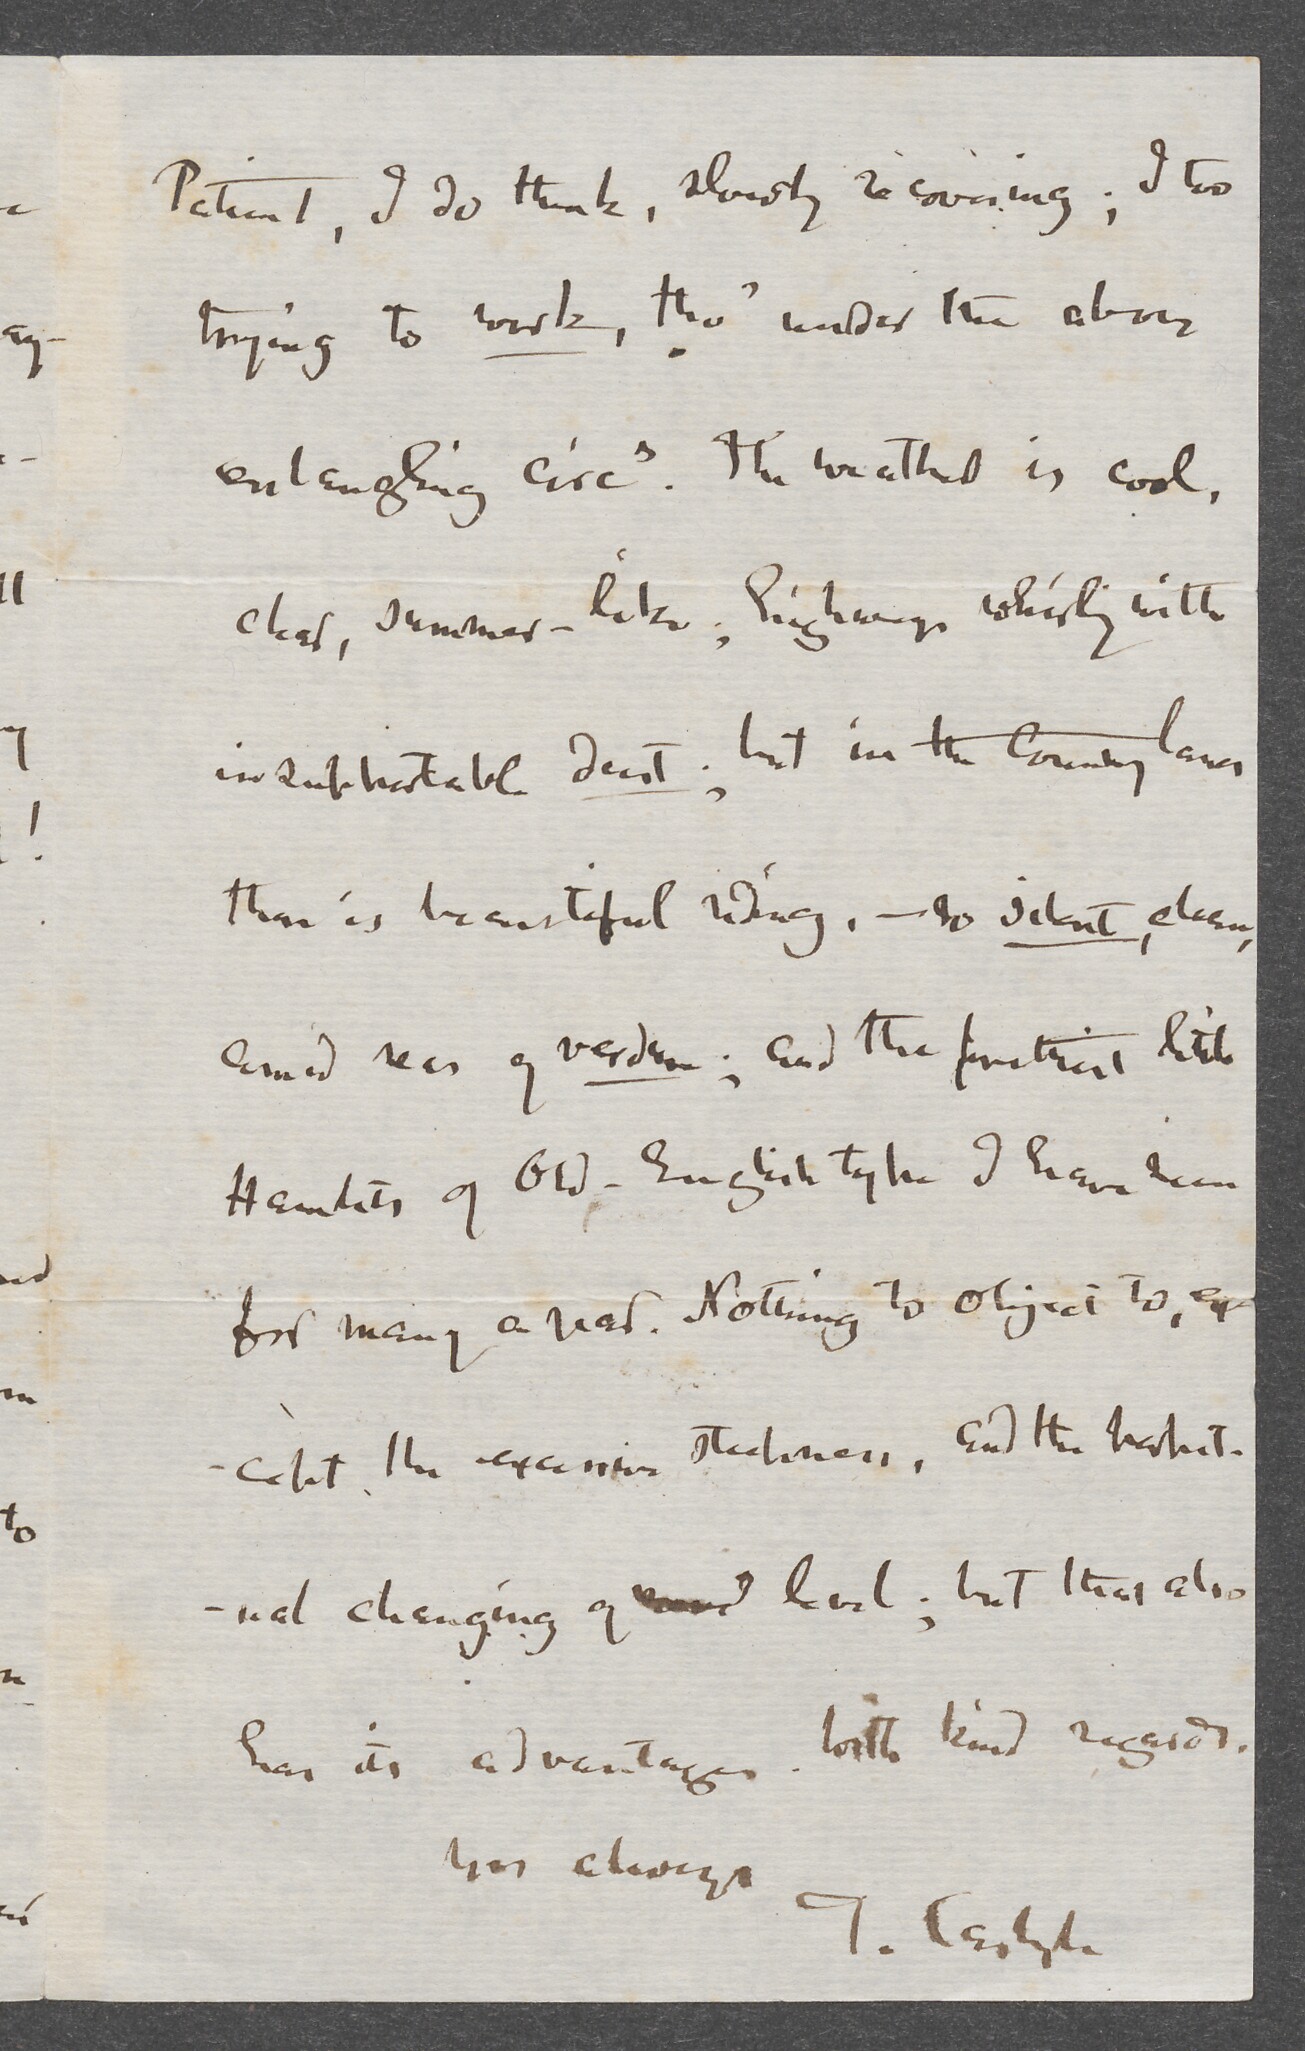 Patient, I do think, slowly recovering; I too
trying to work, tho' under the above
entangling circs. The weather is cool,
clear, summer-like; highways whirling with
insupportable dust; but in the Country lanes
there is beautiful riding, — so silent, clean,
amid seas of verdure; and the prettiest little
Hamlets of Old-English type I have seen
for many a year. Nothing to object to, ex-
-cept the excessive steepness, and the perpet-
-ual changing of level; but that also
has its advantages. With kind regards.
Yrs always
T. Carlyle